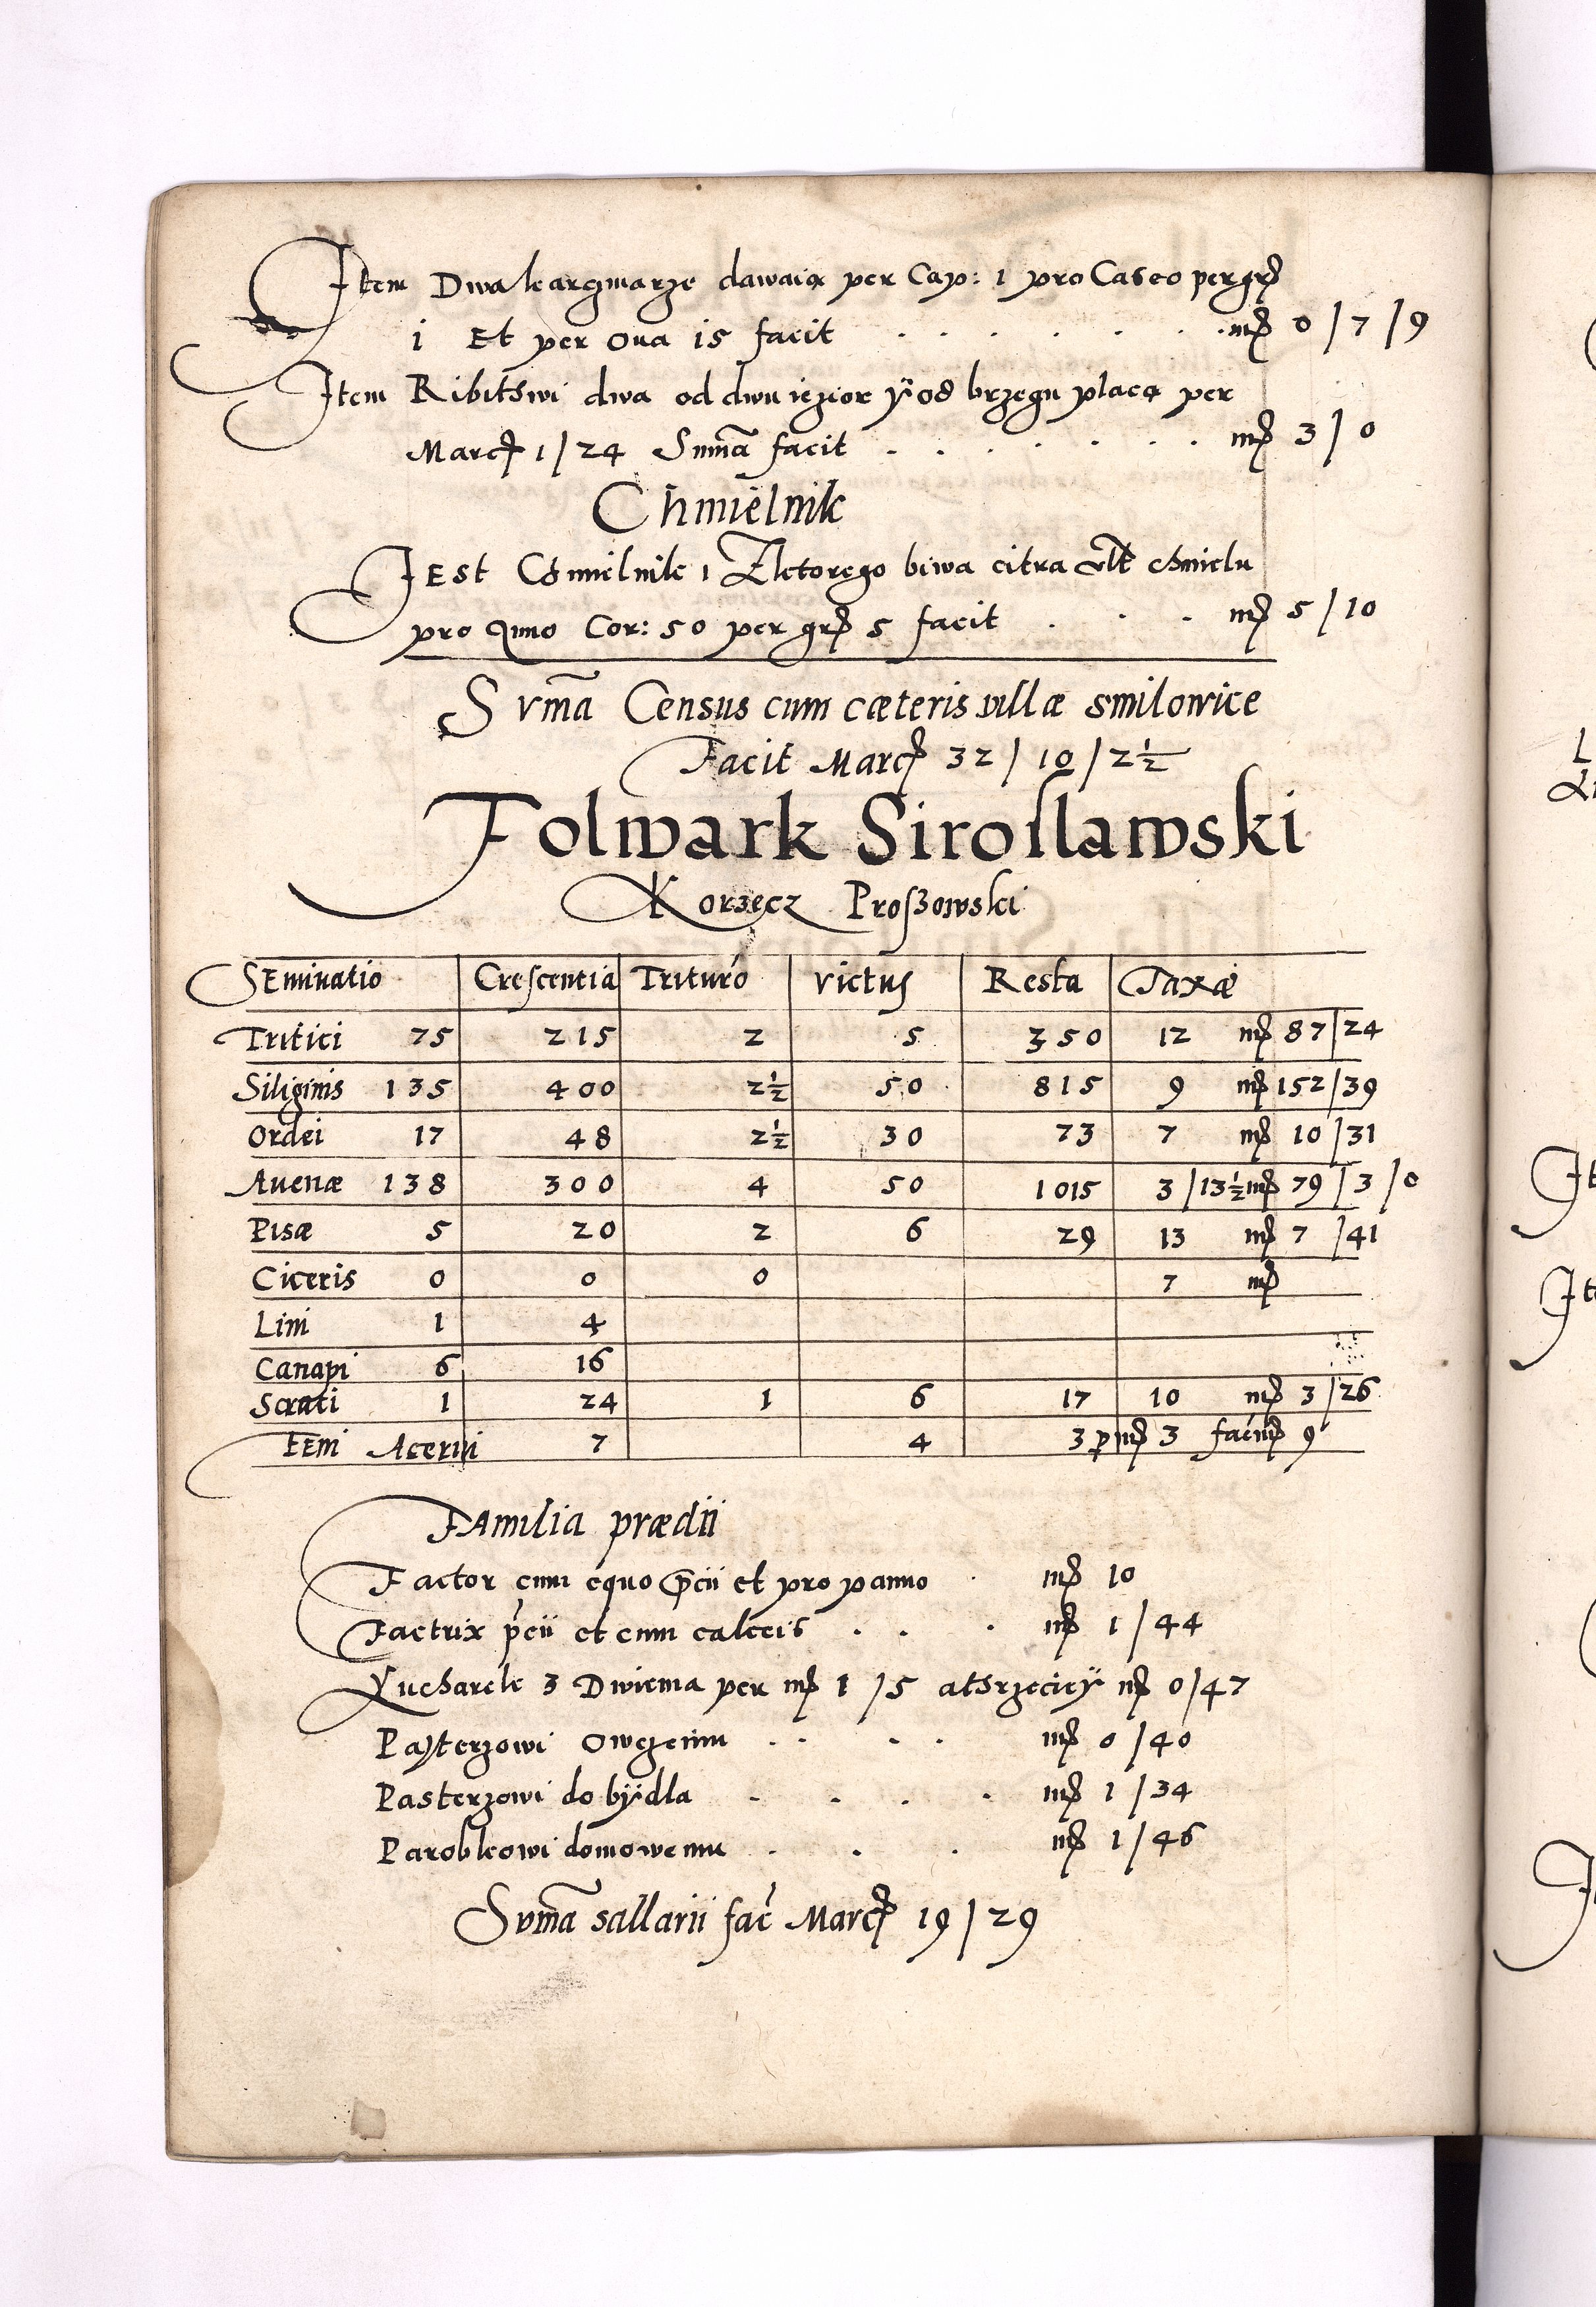 Item Dwa karczmarze dawaią per Cap: 1 pro Caseo per grꝭ
1 Et per Oua 15 facit . . . . . . . mꝭ 0 / 7 / 9
Item Ribithwi dwa od dwu iezior ÿ od brzegu placą per
Marcꝭ 1 / 24 Sum̃a facit . . . . . . mꝭ 3 / 0
Chmielnik
JEst Chmielnik 1 Z ktorego biwa citra chmielu
pro Anno Cor: 50 per grꝭ 5 facit . . . mꝭ 5 / 10
Svm̃a Census cum cæteris villæ Smilowice
Facit Marcꝭ 32 / 10 / 2½
Folwark Siroslawski
Korzecz Proszowski
SEminatio Crescentia Trituro victus Resta Taxæ
Tritici 75 215 2 5 350 12 mꝭ 87 / 24
Siliginis 135 400 2½ 50 815 9 mꝭ 152 / 39
Ordei 17 48 2½ 30 73 7 mꝭ 10 / 31
Auenæ 138 300 4 50 1015 3 / 13½ mꝭ 79 / 3 / 0
Pisæ 5 20 2 6 29 13 mꝭ 7 / 41
Ciceris 0 0 0 7 mꝭ
Lini 1 4
Canapi 6 16
Scrati 1 24 1 6 17 10 mꝭ 3 / 26
FEni Acerui 7 4 3 p mꝭ 3 fac̃ mꝭ 9
FAmilia prædii
Factor cum equo p̃cii et pro panno . mꝭ 10
Factrix p̃cii et cum calceis . . . mꝭ 1 / 44
Kucharek 3 Dwiema per mꝭ 1 / 5 a thrzeciey mꝭ 0 / 47
Pasterzowi Owczemu . . . . mꝭ 0 / 40
Pasterzowi do bÿdla . . . . mꝭ 1 / 34
Parobkowi domowemu . . . mꝭ 1 / 46
Svm̃a sallarii fac̃ Marcꝭ 19 / 29